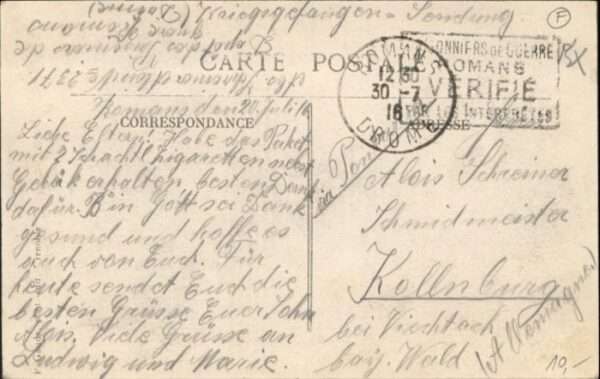 Kriegsgefangen-Sendung
CARTE POSTALE
ROMANS
12 30
30 -7
16
DROME
PRISONNIERS DE GUERRE
ROMANS
VÉRIFIÉ
PAR LES INTERPRÈTES
Romans den 20. Juli 16
CORRESPONDANCE
ADRESSE
Liebe Eltern! Habe das Paket
mit 2 Schachtl Zigaretten nebst
Gebäk erhalten besten Dank
dafür. Bin Gott sei Dank
gesund und hoffe es
auch von Euch. Für
heute sendet Euch die
besten Grüsse Euer Sohn
Alois. Viele Grüsse an
Ludwig und Marie.
via Pon
Alois Schreiner
Schmidmeister
Kollnburg
bei Viechtach
bay. Wald
(Allemagne)
10,-
F